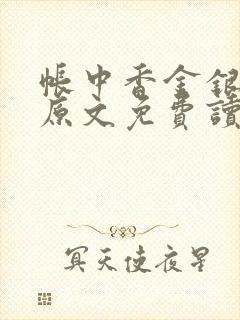 帳中香金銀
原文免費讀
冥天使夜星